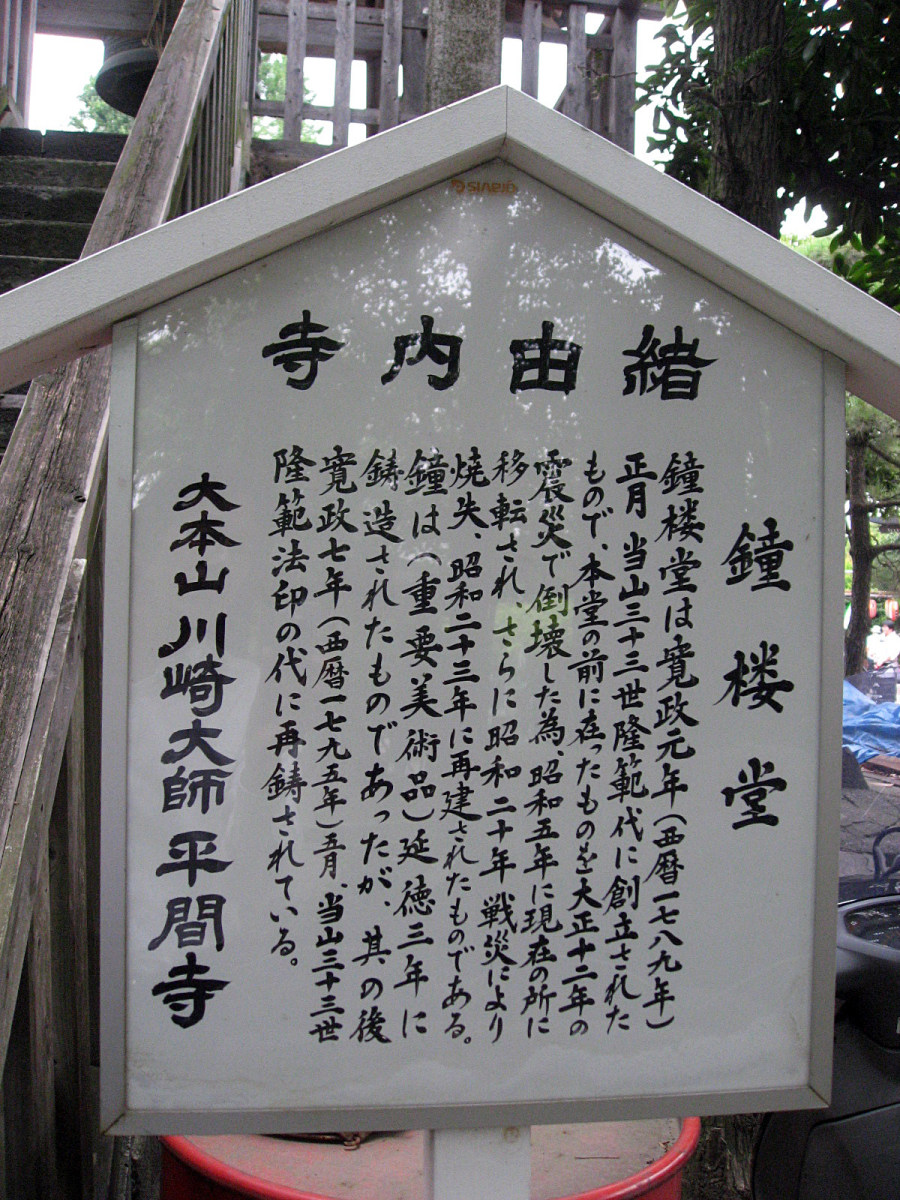 寺内由緒
鐘楼堂
鐘楼堂は寛政元年（西暦一七八九年）
正月当山三十三世隆範代に創立された
もので、本堂の前に在ったものを大正十二年の
震災で倒壊した為昭和五年に現在の所に
移転され、さらに昭和二十年戦災により
焼失、昭和二十三年に再建されたものである。
鐘は（重要美術品）延徳三年に
鋳造されたものであったが、其の後
寛政七年（西暦一七九五年）五月、当山三十三世
隆範法印の代に再鋳されている。
大本山川崎大師平間寺